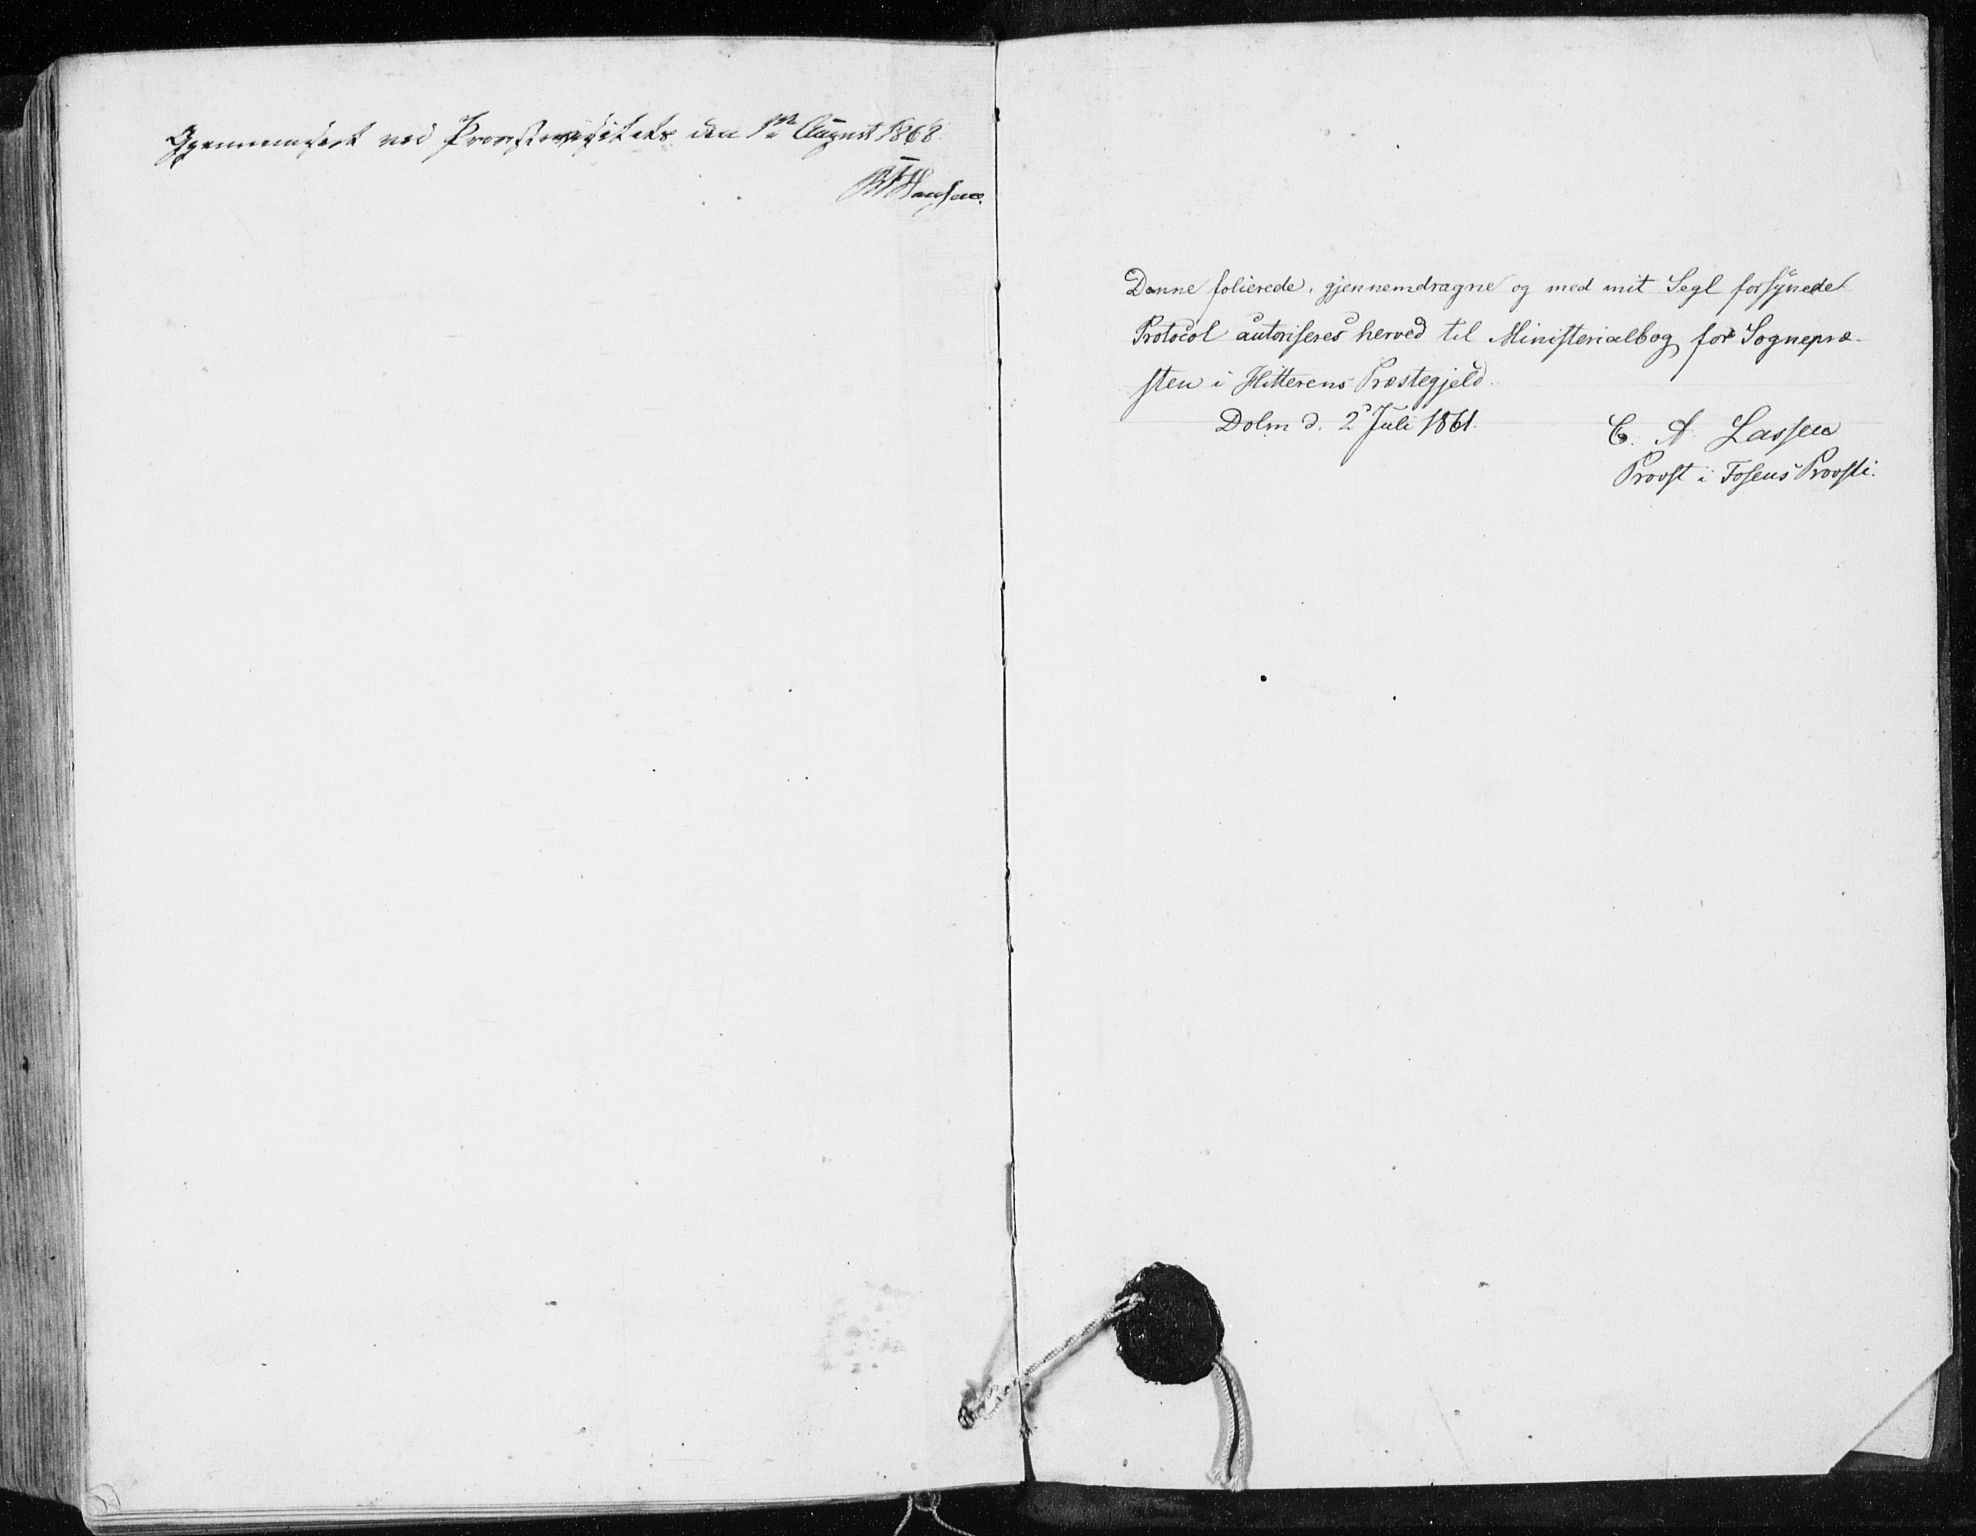 Gjennemseet ved Provstevisitats den 1ste August 1868.
Hansen.
Denne folierede, gjennemdragne og med mit Segl forsynede
Protocol autoriseres herved til Ministerialbog for Sognepræ-
sten i Hitterens Præstegjeld.
Dolm d. 2 Juli 1861.
C. A. Lassen
Provst i Fosens Provsti.